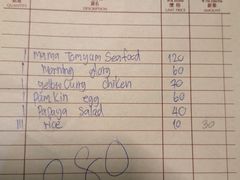 QUANTITY DESCRIPTION UNIT PRICE AMOUNT
1 Mama Tomyum Seafood 120
1 Morning glory 60
1 Yellow Curry chiken 70
1 Pam Kin egg 60
1 Papaya Salad 40
III Rice 10 30
380